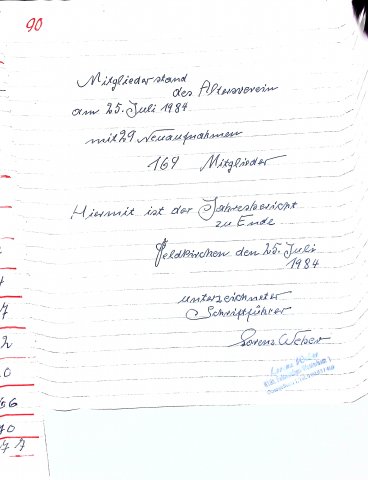 90
Mitgliederstand
des Altersverein
am 25. Juli 1984
mit 29 Neuaufnahmen
169 Mitglieder
Hiermit ist der Jahresbericht
zu Ende
Feldkirchen den 25. Juli
1984
unterzeichneter
Schriftführer
Lorenz Weber
7
2
0
56
70
77